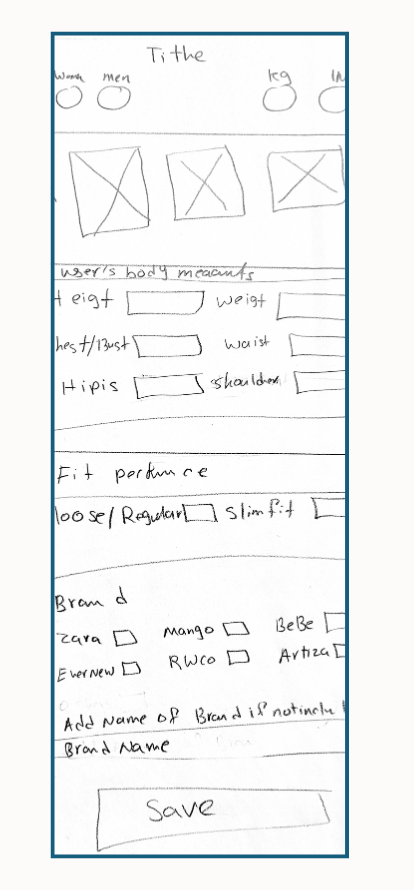 Tithe
Women men kg IN
user's body meaants
Heigt Weigt
hest/Bust Waist
Hipis Shoulders
Fit portunce
loose/Regular Slim fit
Brand
Zara Mango BeBe
Evernew RWCO Artiza
Add Name of Brand if notinclu
Brand Name
Save